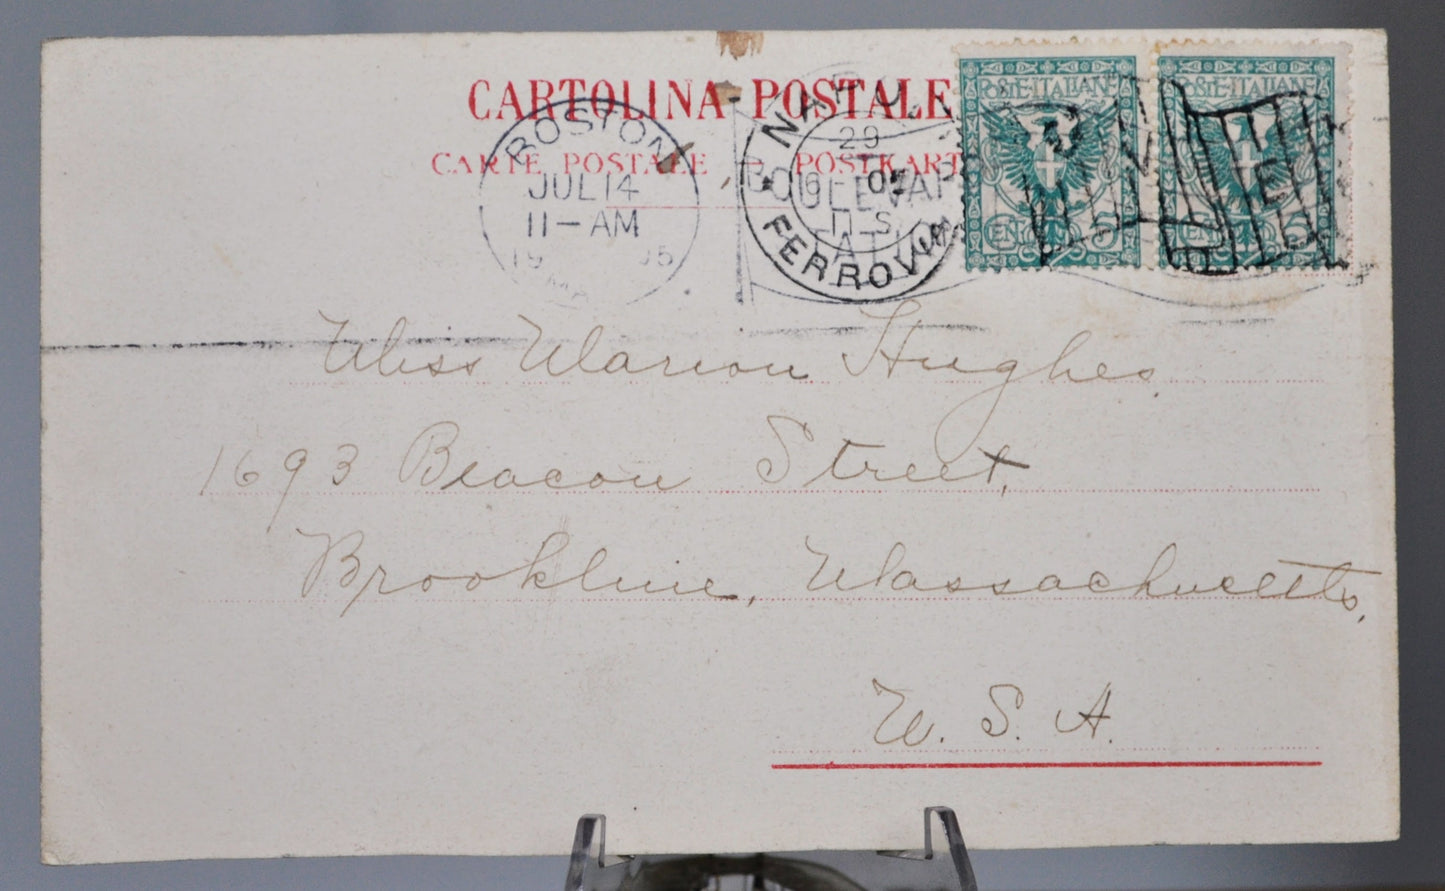 CARTOLINA POSTALE
CARTE POSTALE - POSTKARTE
BOSTON
JUL 14
11-AM
1905
MASS.
NAPOLI
29
6 05
11 S
FERROVIA
POSTE ITALIANE
CENT 5
POSTE ITALIANE
CENT 5
Miss Marion Hughes
1693 Beacon Street,
Brookline, Massachusetts,
U. S. A.